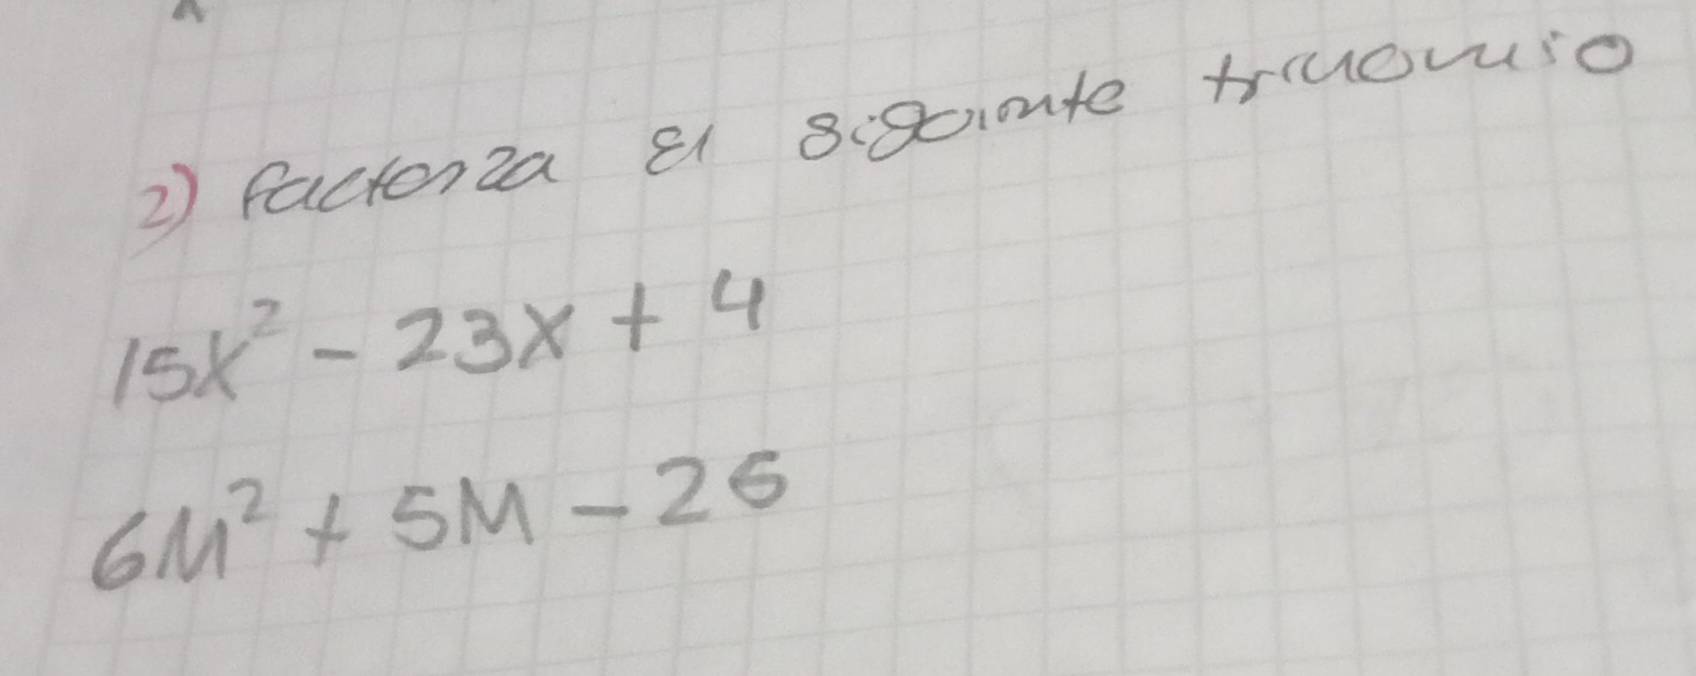 2) factoriza el siguiente trinomio
15x² - 23x + 4
6M² + 5M - 26